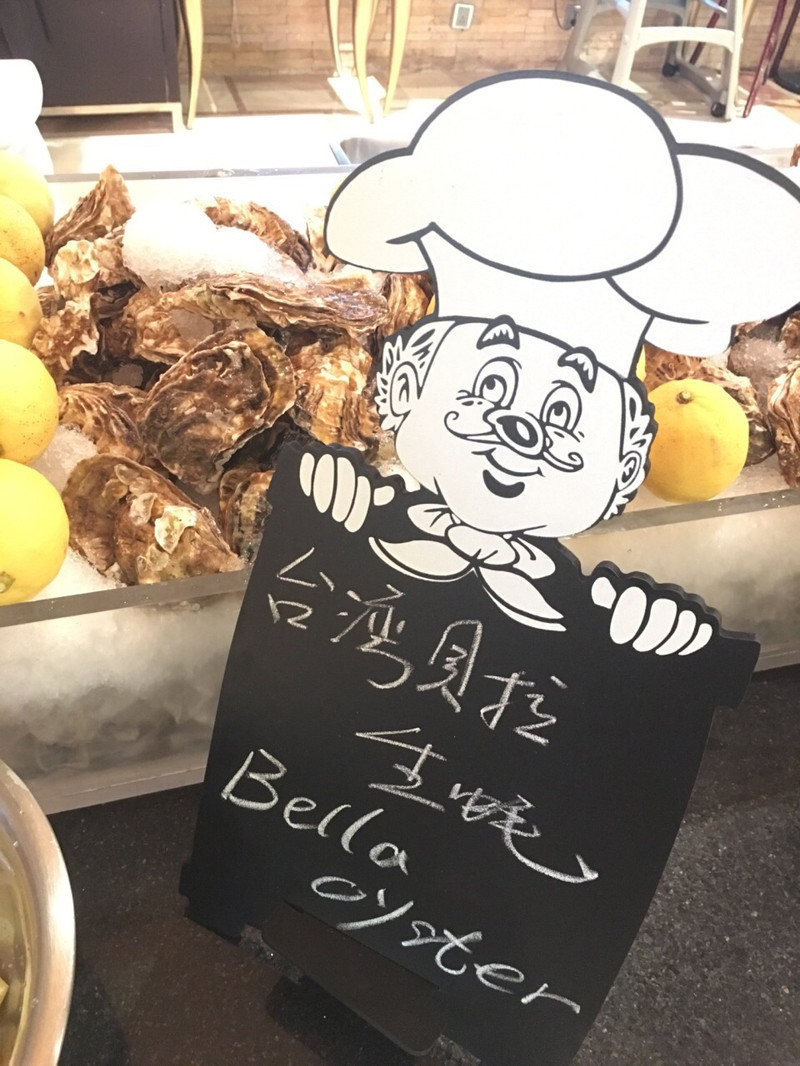 台灣貝拉
生蠔
Bella
oyster